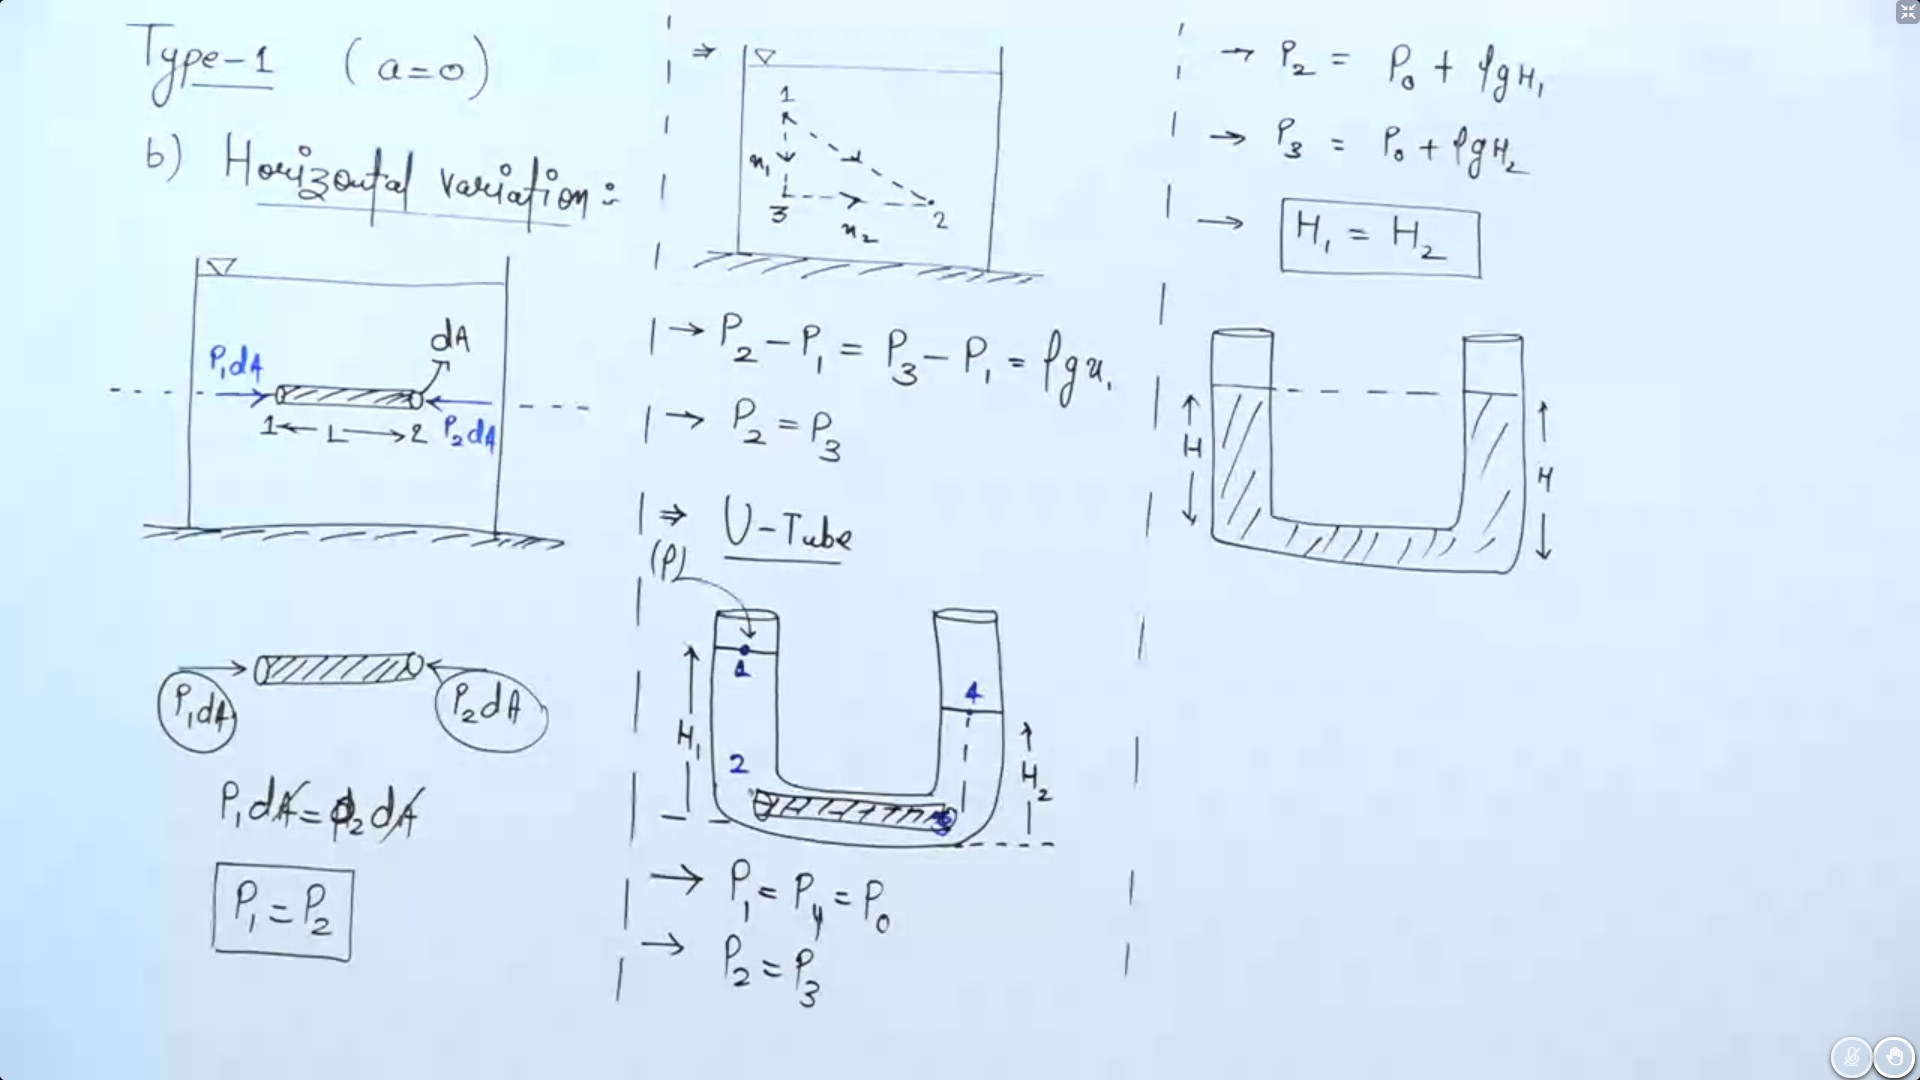 Type-1 (a=0)
b) Horizontal variation:-
P₁dA
dA
1 ← L → 2
P₂dA
P₁dA
P₂dA
P₁dA = P₂dA
P₁ = P₂
⇒
1
x₁
3
x₂
2
→ P₂ - P₁ = P₃ - P₁ = ρgx₁
→ P₂ = P₃
⇒ U-Tube
(ρ)
1
4
H₁
2
H₂
3
→ P₁ = P₄ = P₀
→ P₂ = P₃
→ P₂ = P₀ + ρgH₁
→ P₃ = P₀ + ρgH₂
→ H₁ = H₂
H
H